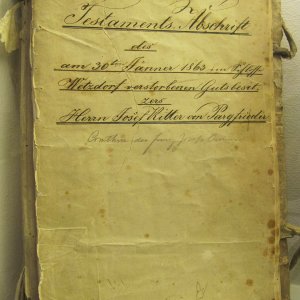 Testaments Abschrift
des
am 30ten Jänner 1863 im Schloß
Wetzdorf verstorbenen Gutsbesit,
zers
Herrn Josef Ritter von Pargfrieder